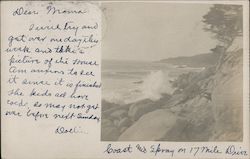 Dear Mama.
I will try and
get over one day this
week and take a
picture of the house
Am anxious to see
it since it is finished
The kids all have
colds, so may not get
over before next Sunday
Dollie.
Coast and Spray on 17 Mile Drive